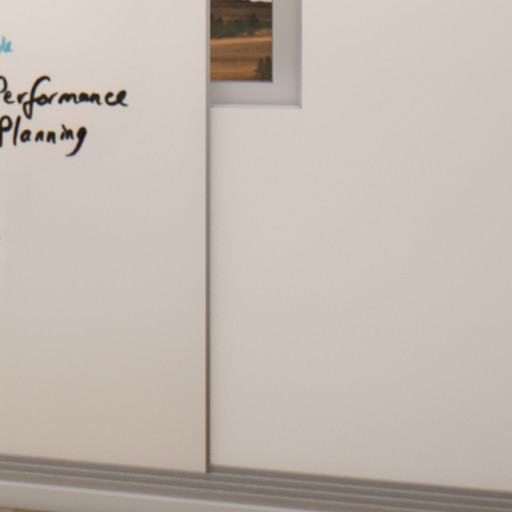 Performance
Planning